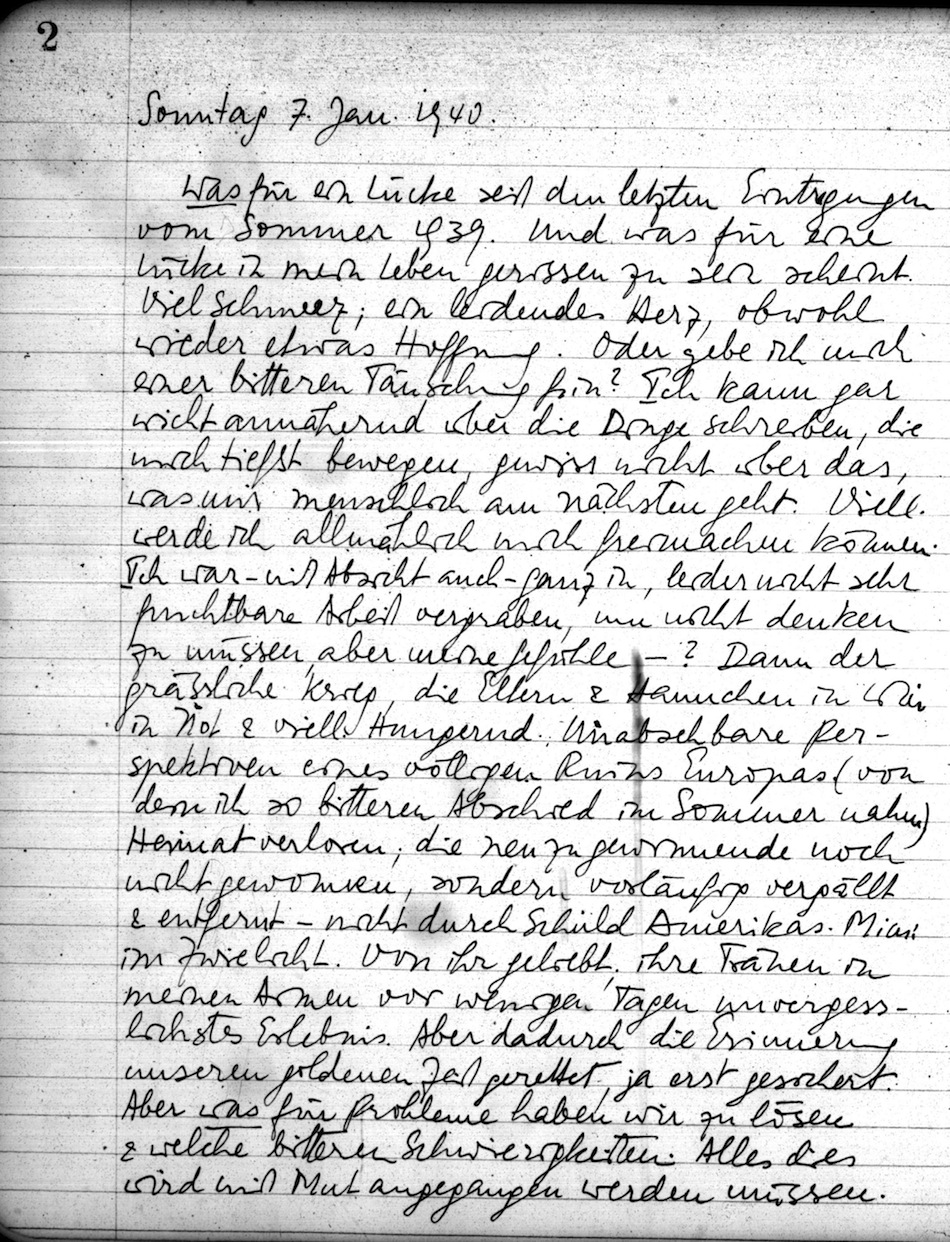 2
Sonntag 7. Jan. 1940.
Was für ein Lücke seit den letzten Eintragungen
vom Sommer 1939. Und was für eine
Lücke in mein Leben gerissen zu sein scheint.
Viel Schmerz; ein leidendes Herz, obwohl
wieder etwas Hoffnung. Oder gebe ich mich
einer bitteren Täuschung hin? Ich kann gar
nicht annähernd über die Dinge schreiben, die
mich tiefst bewegen, gewiss nicht über das,
was mir menschlich am nächsten geht. Viell.
werde ich allmählich mich freimachen können.
Ich war – mit Absicht auch – ganz in, leider nicht sehr
fruchtbare Arbeit vergraben, um nicht denken
zu müssen, aber meine Gefühle – ? Dann der
grässliche Krieg, die Eltern & Hannchen in Wien
in Not & viell. Hungernd. Unabsehbare Per-
spektiven eines völligen Ruins Europas (von
dem ich so bitteren Abschied im Sommer nahm)
Heimat verloren; die neu zu gewinnende noch
nicht gewonnen, sondern vorläufig vergällt
& entfernt – nicht durch Schuld Amerikas.
im Zwielicht. Von ihr geliebt, ihre Tränen in
meinen Armen vor wenigen Tagen unvergess-
lichstes Erlebnis. Aber dadurch die Erinnerung
unseren goldenen Zeit gerettet, ja erst gesichert.
Aber was für Probleme haben wir zu lösen
& welche bitteren Schwierigkeiten. Alles dies
wird mit Mut angegangen werden müssen.